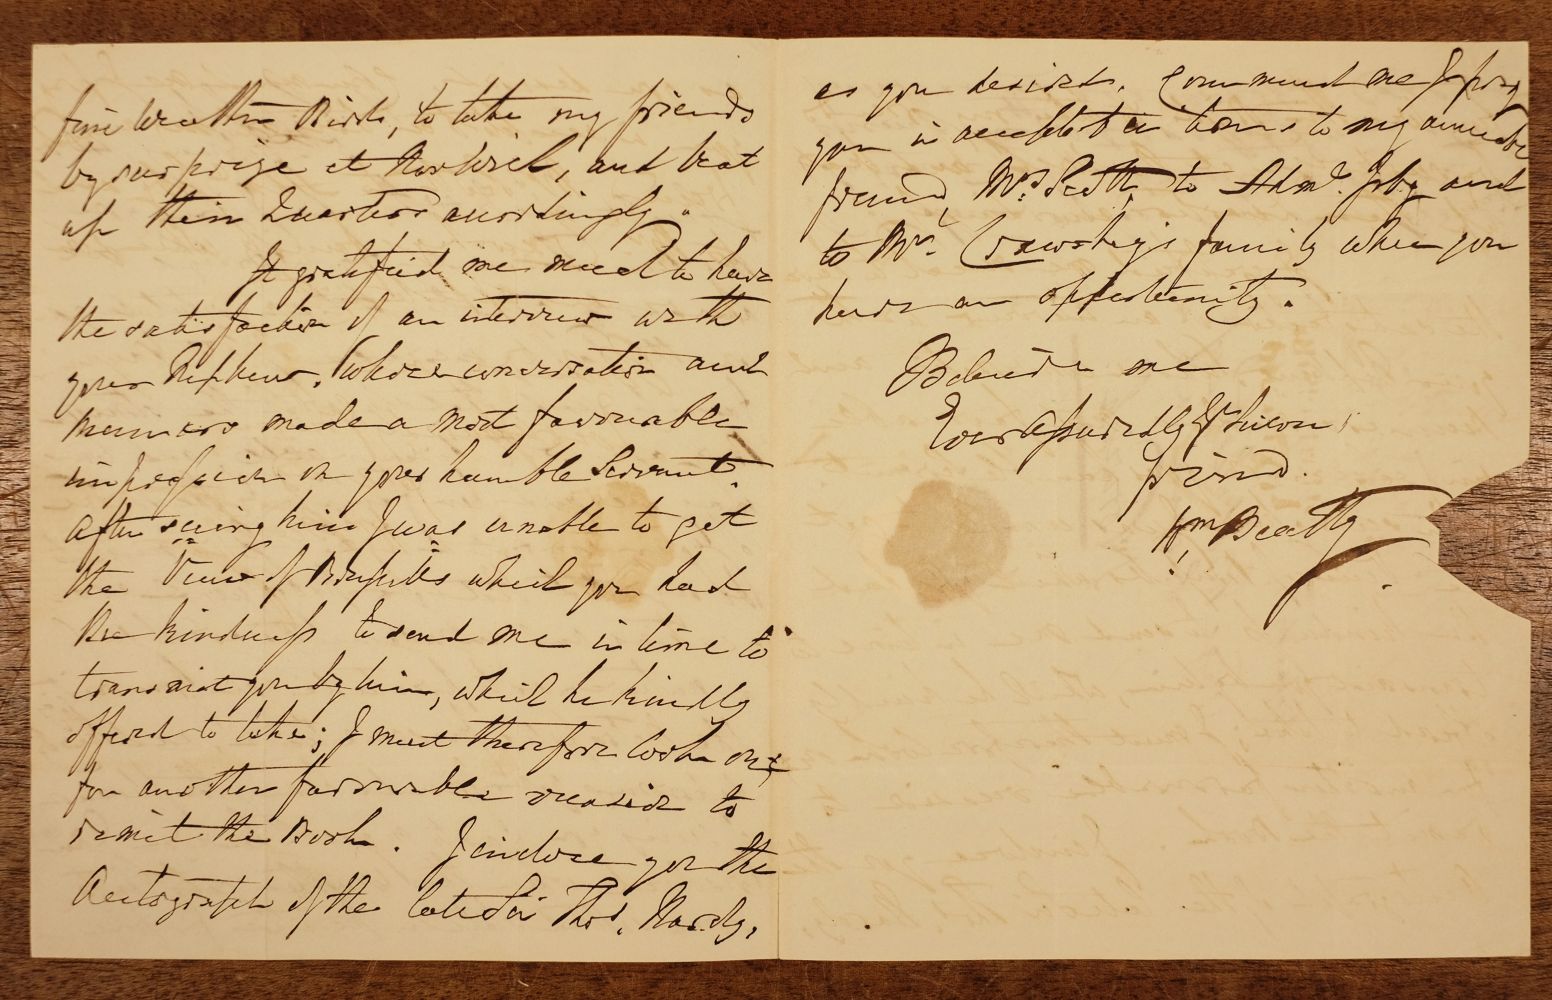 fine weather Birds, to take my friends
by surprize at Norwich, and beat
up their Quarters accordingly.
It gratified me much to have
the satisfaction of an interview with
your Nephew, whose conversation and
manners made a most favourable
impression on your humble Servant.
After seeing him I was unable to get
the View of which you had
the kindness to send me in time to
transmit you by him, which he kindly
offered to take; I must therefore look out
for another favourable occasion to
remit the Book. I inclose you the
Autograph of the late Sir Thos. Hardy,
as you desired. Commend me I pray
you in acceptable terms to my amiable
friend, Mrs. Scott, to Adml. and
to Mr. Crawshay's family when you
have an opportunity.
Believe me
Ever assuredly Yr. sincere
friend.
Wm Beatty